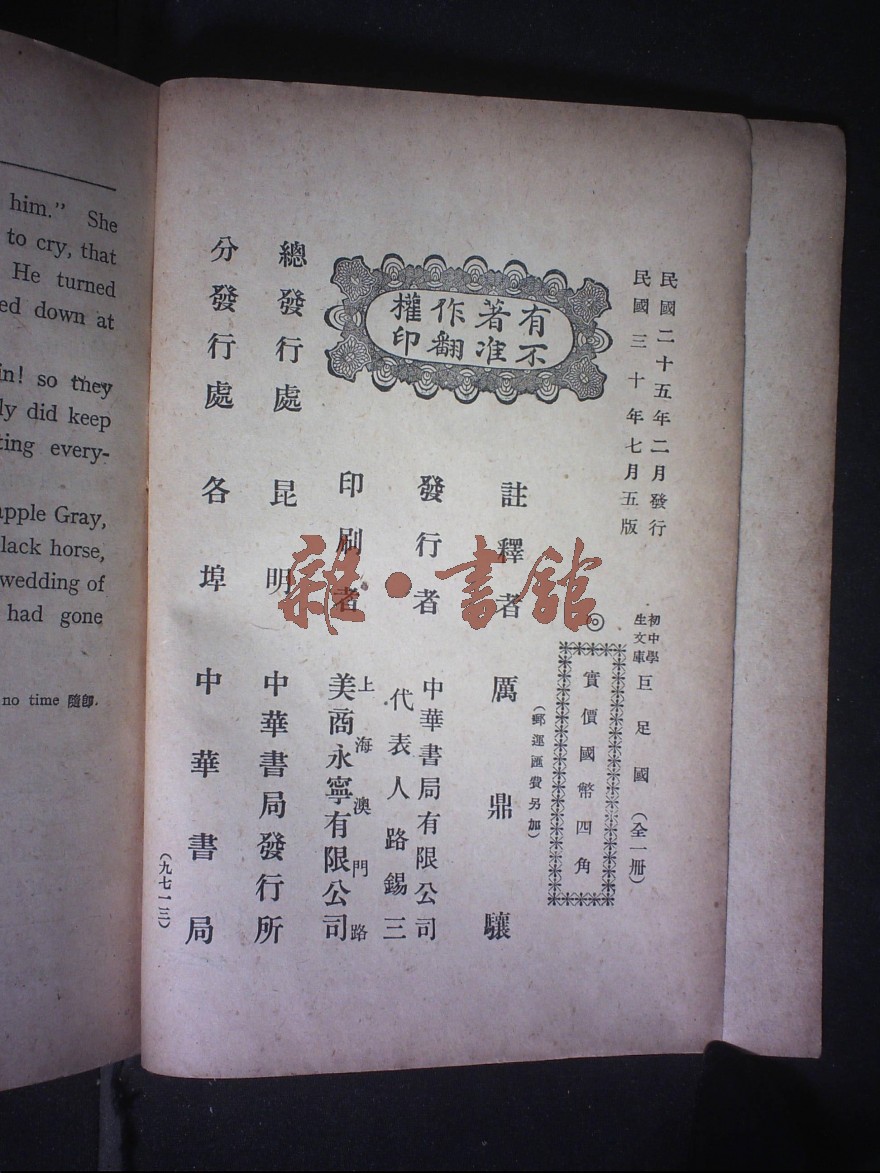 him." She
to cry, that
He turned
ed down at
in! so they
ly did keep
ting every-
apple Gray,
lack horse,
wedding of
had gone
no time 隨卽.
民國二十五年二月發行
民國三十年七月五版
初中學
生文庫
巨足國(全一冊)
◎實價國幣四角
(郵運匯費另加)
有著作權
不准翻印
註釋者 厲鼎驤
發行者 中華書局有限公司
代表人路錫三
印刷者 上海澳門路
美商永寧有限公司
總發行處 昆明 中華書局發行所
分發行處 各埠 中華書局
(九七一三)
雜·書館